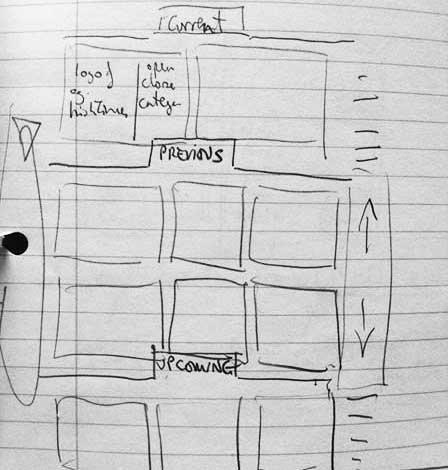 Current
logo of
eg.
Irish Times
open
close
category
PREVIOUS
UPCOMING